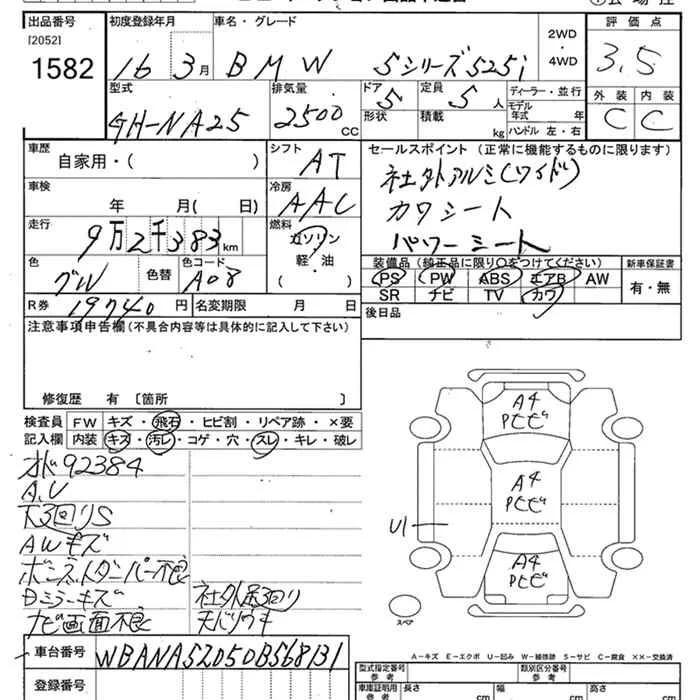 出品番号 初度登録年月 車名・グレード 評価点
[2052]
1582 16 3月 BMW 5シリーズ525i 2WD・4WD 3.5
型式 排気量 ドア 定員 ディーラー・並行 外装 内装
GH-NA25 2500 CC 5 5人 モデル年式 年 C C
形状 積載 kg ハンドル 左・右
車歴 シフト セールスポイント (正常に機能するものに限ります)
自家用・( ) AT 社外アルミ(ワイド)
車検 冷房 カワシート
年 月( 日) AAC パワーシート
走行 燃料
9万2千383km ガソリン
軽・油
( )
装備品(純正品に限り○をつけてください) 新車保証書
色 色替 色コード PS PW ABS エアB AW 有・無
グレ A08 SR ナビ TV カワ
R券 19740円 名変期限 月 日 後日品
注意事項申告欄(不具合内容等は具体的に記入して下さい)
修復歴 有 〔箇所 〕
検査員 FW キズ・飛石・ヒビ割・リペア跡・×要
記入欄 内装 キズ・汚レ・コゲ・穴・スレ・キレ・破レ
オド92384
A.U
下回りS
AWキズ
ボンネットダンパー不良
Dミラーキズ 社外足回り
ナビ画面不良 天バリウキ
A4
Pヒビ
A4
Pヒビ
U1
A4
Pヒビ
スペア
A-キズ E-エクボ U-凹み W-補修跡 S-サビ C-腐食 ××-交換済
車台番号 WBANA52050B568131
登録番号
型式指定番号 参考 類別区分番号 参考
車庫証明用 参考 長さ cm 幅 cm 高さ cm